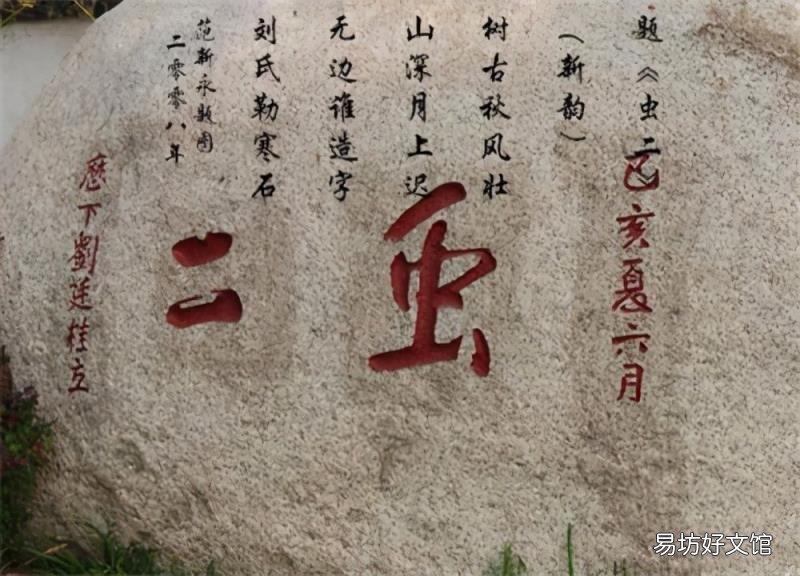 题《虫二》
(新韵)
树古秋风壮
山深月上迟
无边谁造字
刘氏勒寒石
范新永题图
二零零八年
己亥夏六月
虫二
歷下劉廷桂立
易坊好文馆